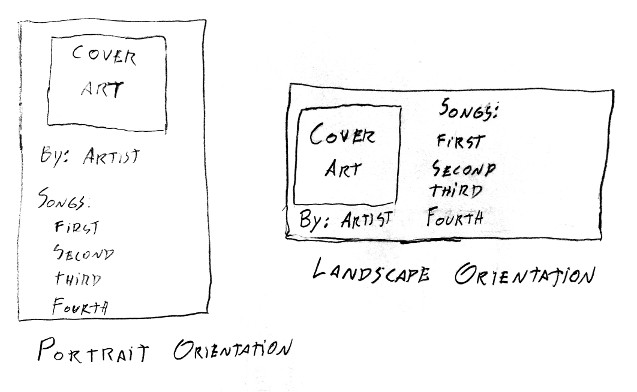 COVER
ART
By: ARTIST
SONGS:
FIRST
SECOND
THIRD
FOURTH
PORTRAIT ORIENTATION
COVER
ART
By: ARTIST
SONGS:
FIRST
SECOND
THIRD
FOURTH
LANDSCAPE ORIENTATION